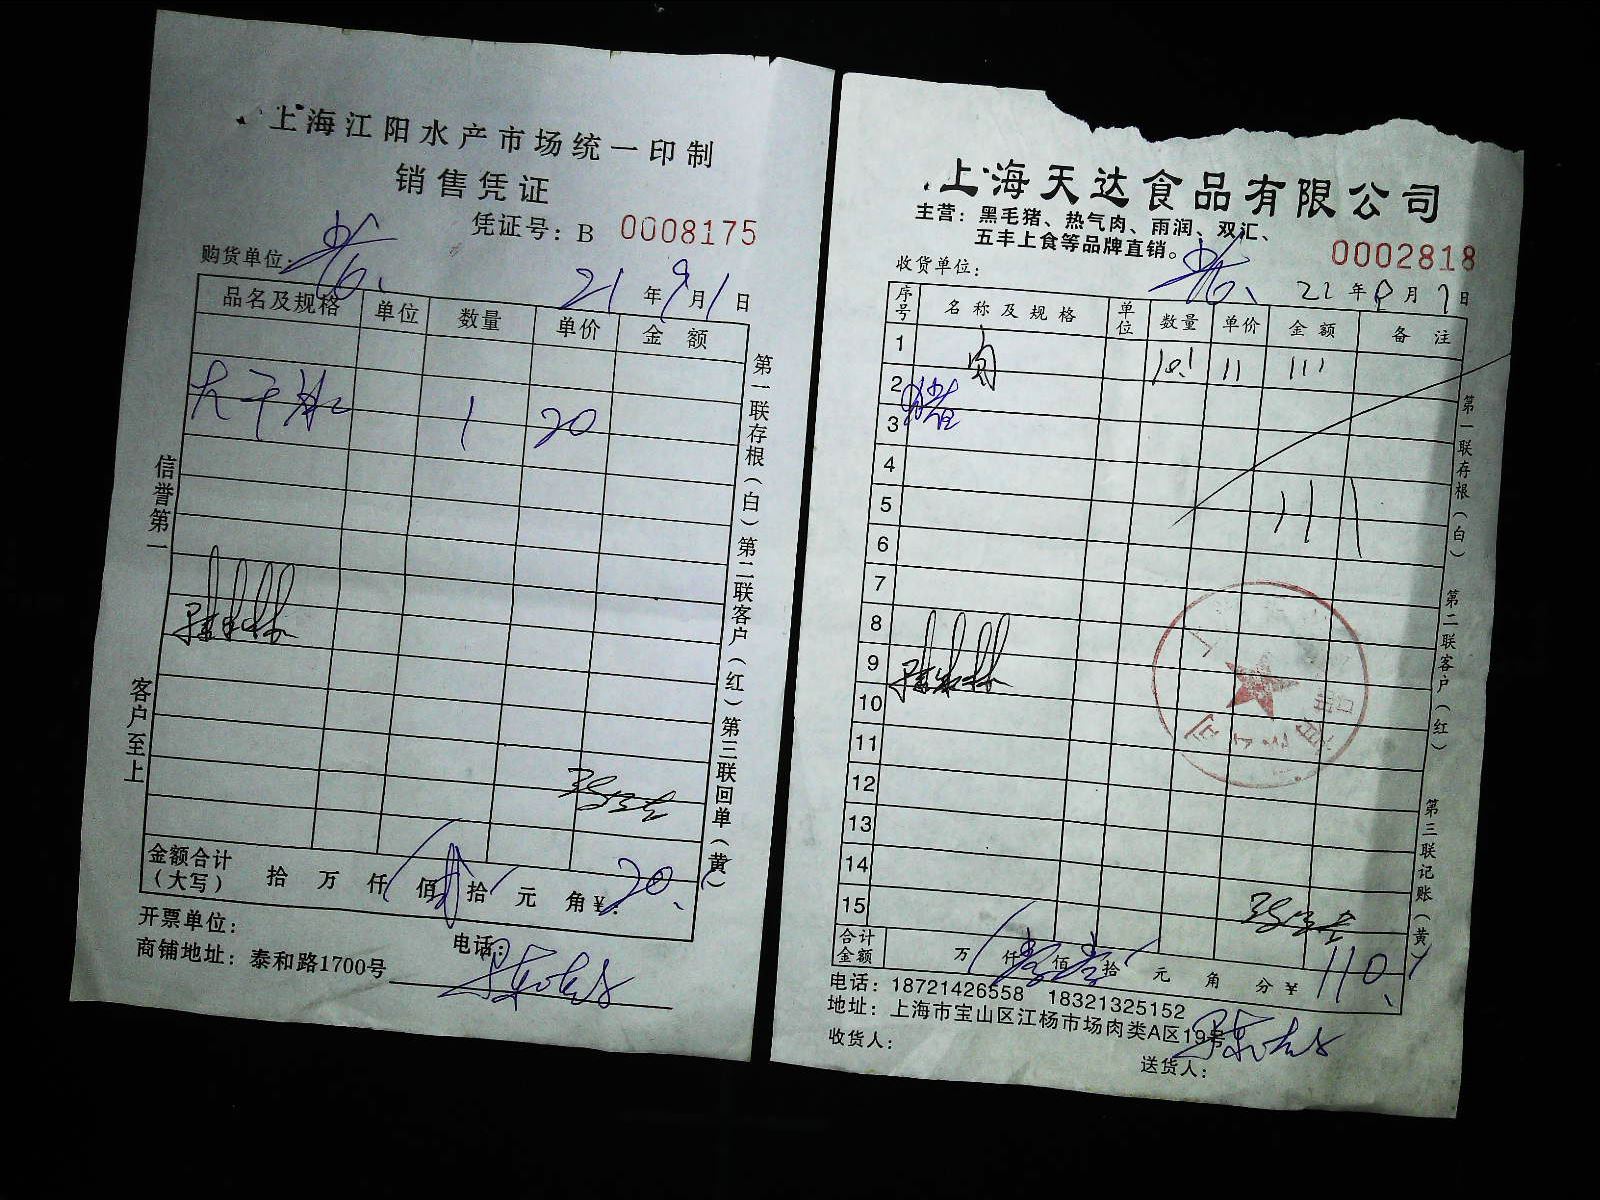 上海江阳水产市场统一印制
销售凭证
凭证号：B 0008175
购货单位：
21 年 9 月 1 日
品名及规格 单位 数量 单价 金额
1 20
信誉第一
客户至上
第一联存根（白）第二联客户（红）第三联回单（黄）
金额合计（大写） 拾 万 仟 佰 贰 拾 元 角 ¥：20
开票单位：
电话：
商铺地址：泰和路1700号
上海天达食品有限公司
主营：黑毛猪、热气肉、雨润、双汇、
五丰上食等品牌直销。
0002818
收货单位：
21 年 月 日
序号 名称及规格 单位 数量 单价 金额 备注
1 肉 10.1 11 111
2
3
4
5 111
6
7
8
9
10
11
12
13
14
15
第一联存根（白） 第二联客户（红） 第三联记账（黄）
合计金额 万 仟 壹 佰 壹 拾 元 角 分 ¥ 110
电话：18721426558 18321325152
地址：上海市宝山区江杨市场肉类A区19号
收货人：
送货人：